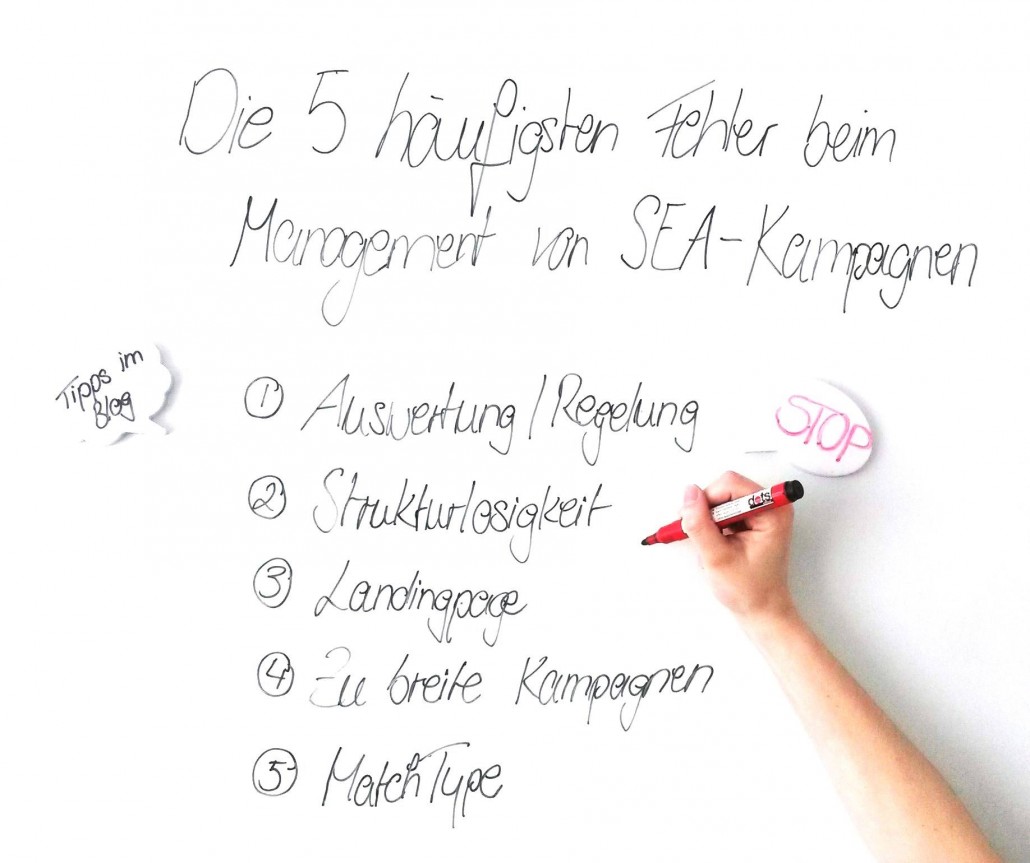 Die 5 häufigsten Fehler beim
Management von SEA-Kampagnen
Tipps im
Blog
① Auswertung/Regelung
STOP
② Strukturlosigkeit
dots
③ Landingpage
④ Zu breite Kampagnen
⑤ MatchType